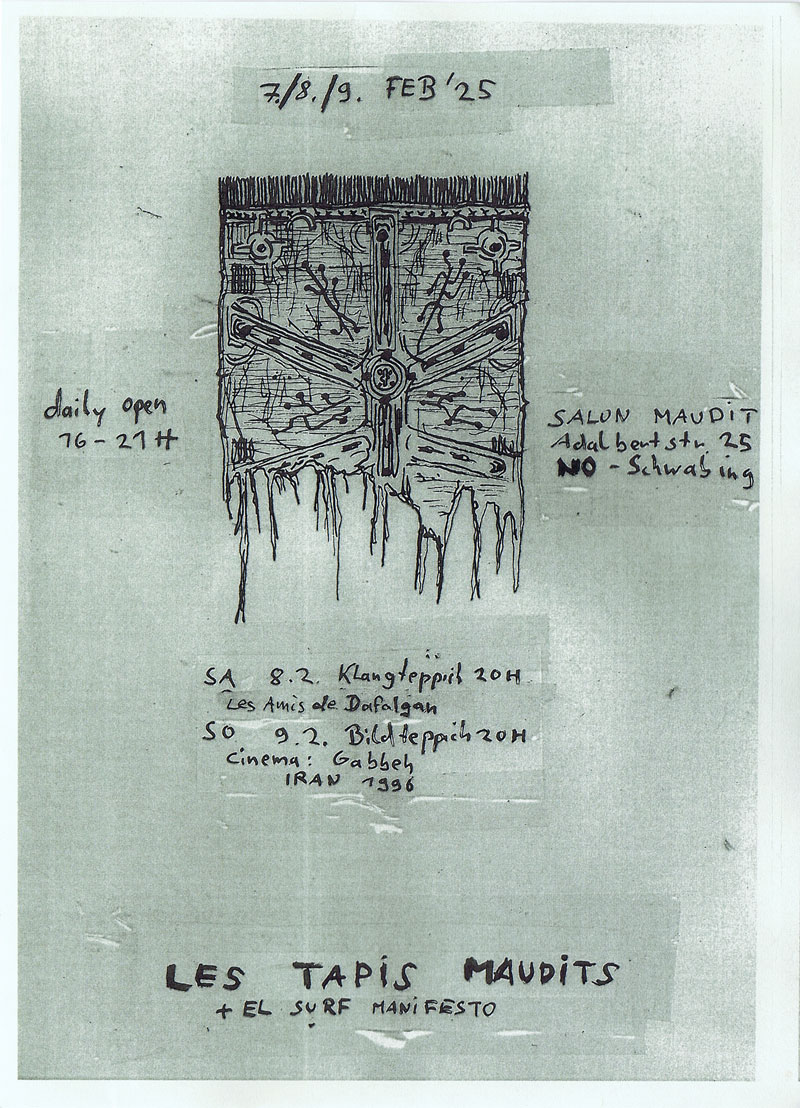 7./8./9. FEB '25
daily open
16-21H
SALON MAUDIT
Adalbertstr. 25
NO-Schwabing
SA 8.2. Klangteppich 20H
Les Amis de Dafalgan
SO 9.2. Bildteppich 20H
Cinema: Gabbeh
IRAN 1996
LES TAPiS MAUDiTS
+ EL SURF MANiFESTO